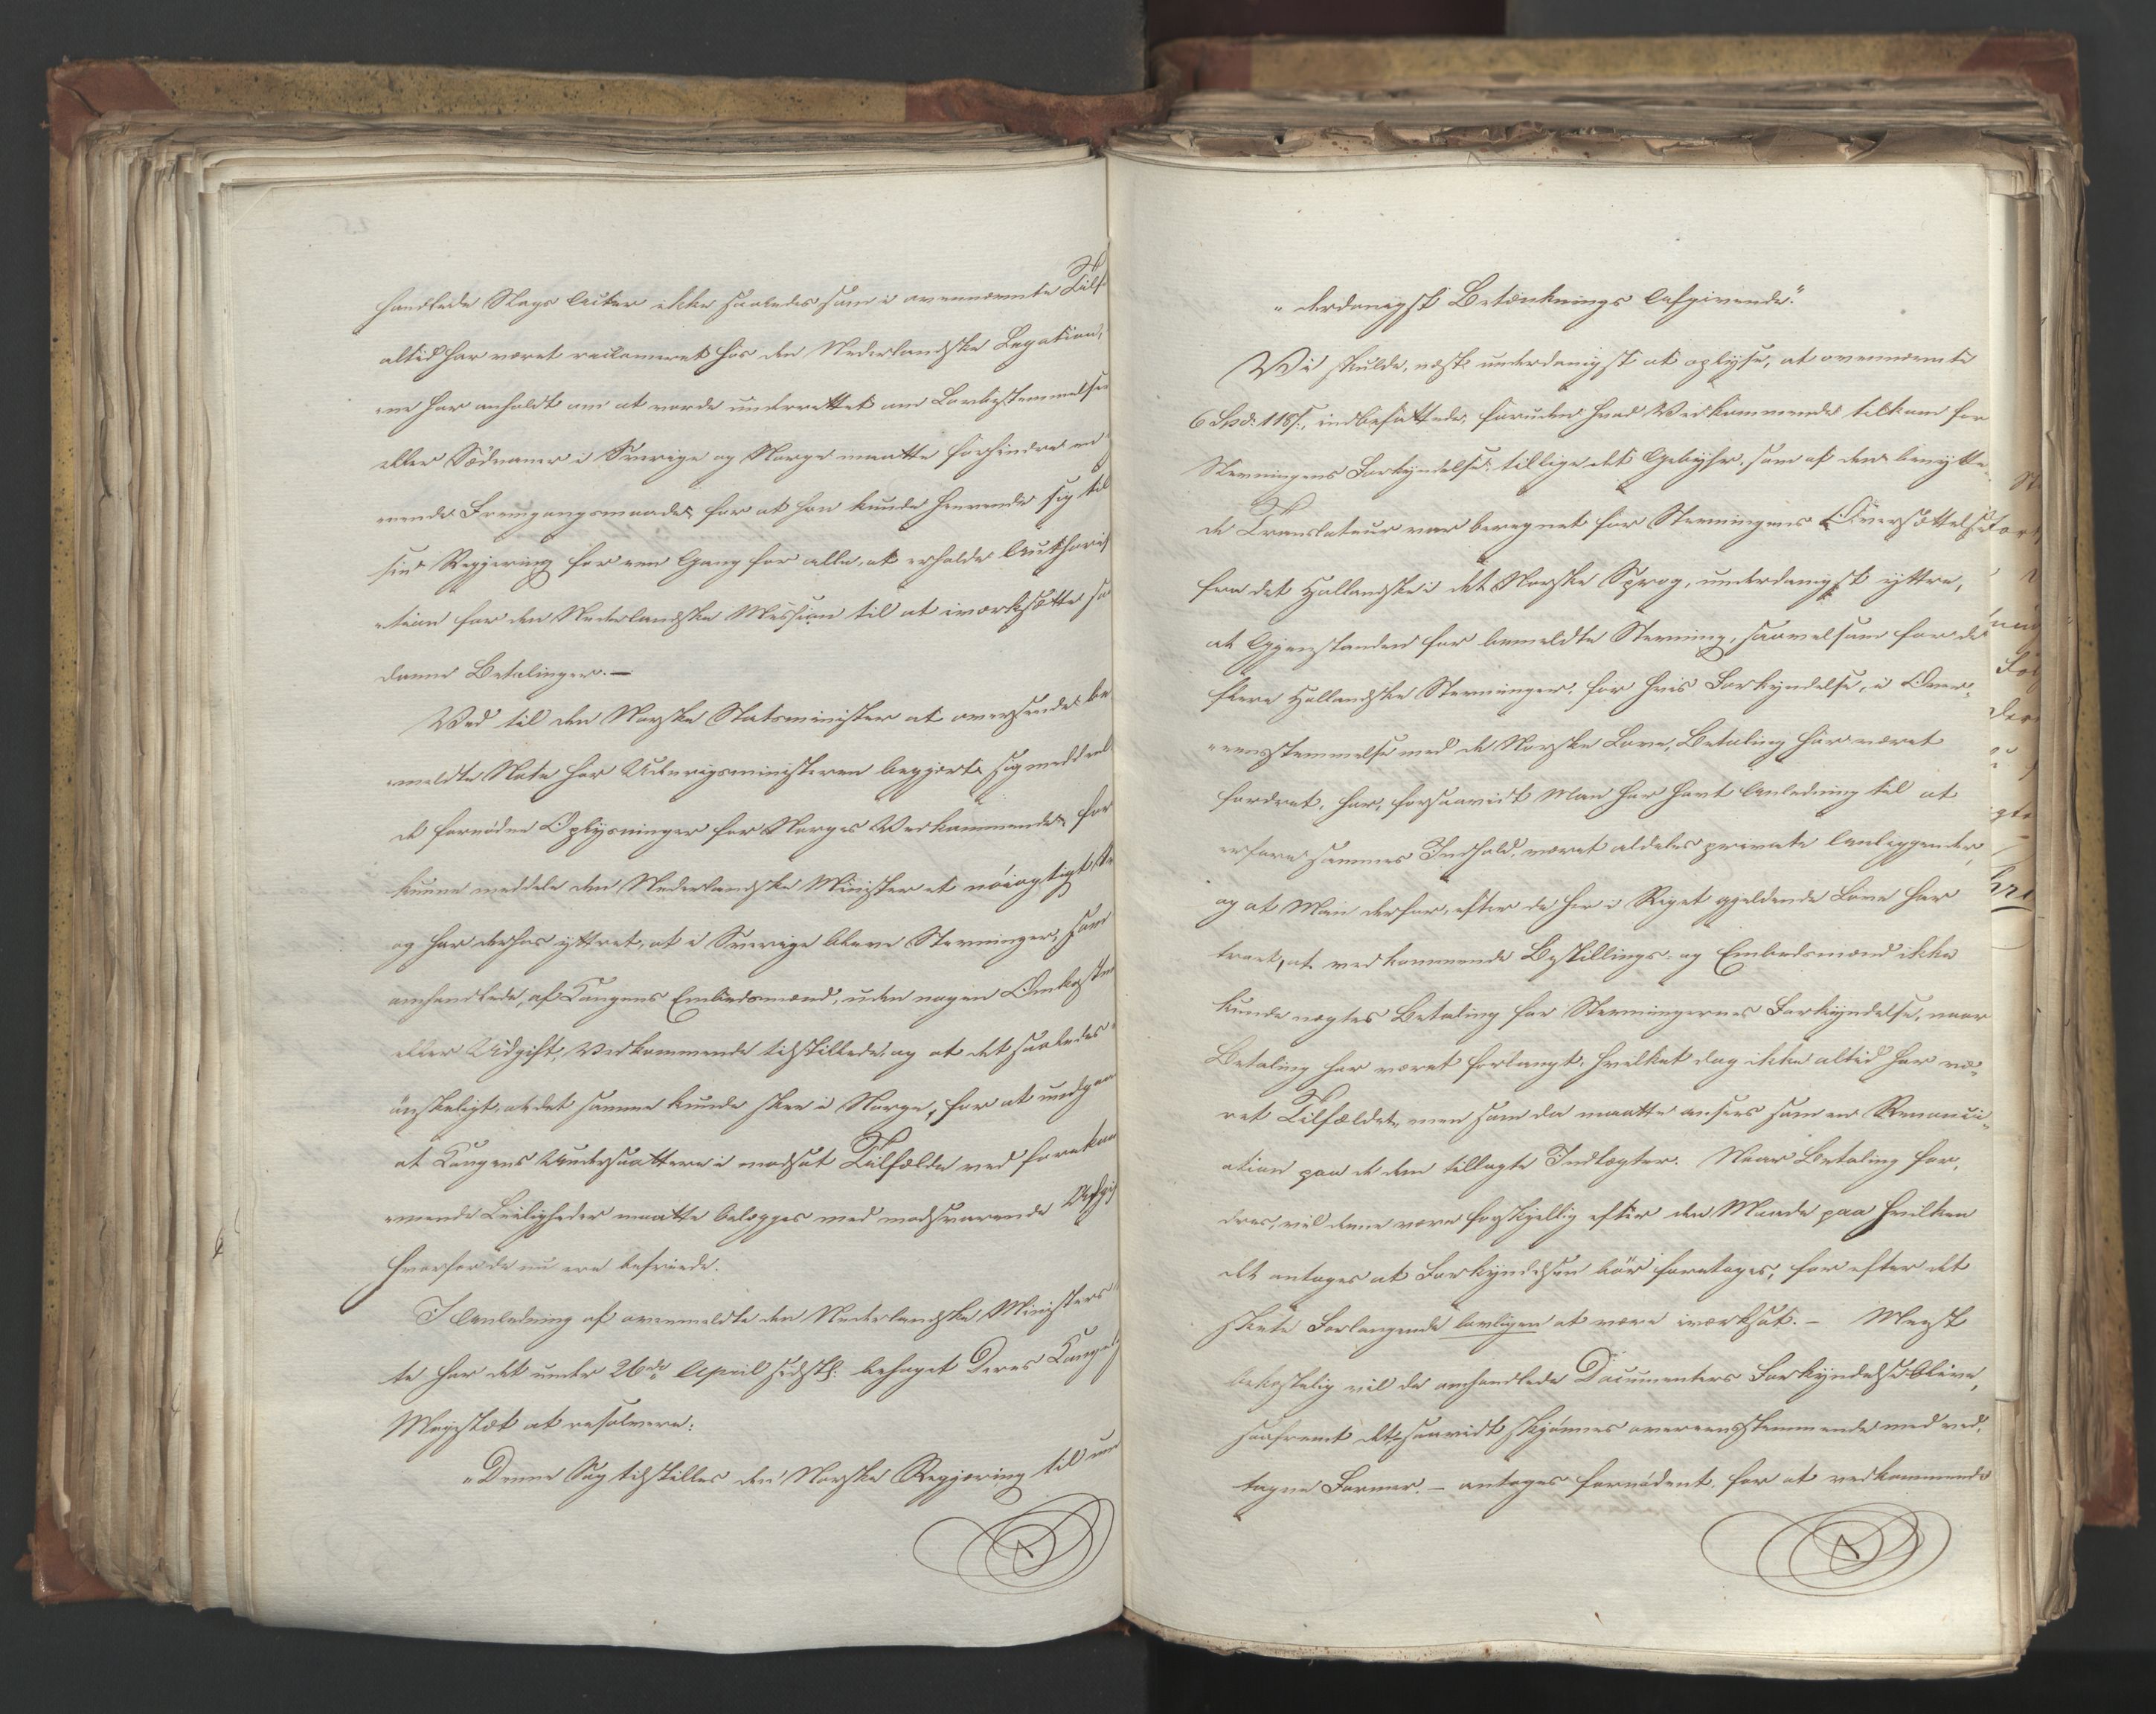 handlede Slags Acter ikke saaledes som i ovennævnte Tilf
altid har været reclameret hos den Nederlandske Legation,
ne har anholdt om at vorde underrettet om Lovbestemmelser
eller Sædvaner i Sverige og Norge maatte forhindre en
nende Fremgangsmaade, for at han kunde henvende sig til
sin Regjering for een Gang for alle, at erholde Authoris
"tion for den Nederlandske Mission til at iværksætte sa
danne Betalinger. —
Ved til den Norske Statsminister at oversende be
"meldte Note har Udenrigsministeren begjært sig meddeel
de fornødne Oplysninger for Norges Vedkommende, for
kunne meddele den Nederlandske Minister et nöiagtigt
og har derhos yttret, at i Sverige bleve Stevninger, som
omhandlede, af Kongens Embedsmænd, uden nogen Omkostn
eller Udgift, Vedkommende tilstillede, og at det saaledes
önskeligt, at det samme kunde skee i Norge, for at undgaa
at Kongens Undersaatter i modsat Tilfælde ved forekom
"mende Leiligheder maatte belægges med modsvarende Udgif
hvorfor de nu ere befriede.
I Anledning af ovenmeldte den Nederlandske Ministers
te har det under 26de April sidstl: behaget Deres Konge
Majestæt at resolvere:
"Denne Sag tilstilles den Norske Regjering til un
"derdanigst Betænknings Afgivende."
Vi skulde, næst underdanigst at oplyse, at ovennævnte
6 Spd: 118 s., indbefattede, foruden hvad Vedkommende tilkom for
Stevningens Forkyndelse, tillige det Gebyhr, som af den benytte
de Translateur var beregnet for Stevningens Oversættelse
fra det Hollandske i det Norske Sprog, underdanigst yttre,
at Gjenstanden for bemeldte Stevning, saavelsom for de
flere Hollandske Stevninger, for hvis Forkyndelse, i Over-
"eensstemmelse med de Norske Love, Betaling har været
fordret, har, forsaavidt Man har havt Anledning til at
erfare sammes Indhold, været aldeles private Anliggender,
og at Man derfor, efter de her i Riget gjeldende Love har
troet, at vedkommende Bestillings- og Embedsmænd ikke
kunde nægtes Betaling for Stevningernes Forkyndelse, naar
Betaling har været forlangt, hvilket dog ikke altid har væ-
ret Tilfældet, men som da maatte ansees som en Renunci-
ation paa de dem tillagte Indtægter. Naar Betaling for-
dres, vil denne være forskjellig efter den Maade paa hvilken
det antages at Forkyndelsen bör foretages, for efter det
skete Forlangende lovligen at være iværksat. — Mest
bekostelig vil de omhandlede Documenters Forkyndelse blive,
saafremt det, saavidt skjønnes overeensstemmende med ved-
tagne Former. — antages fornødent, for at vedkommende